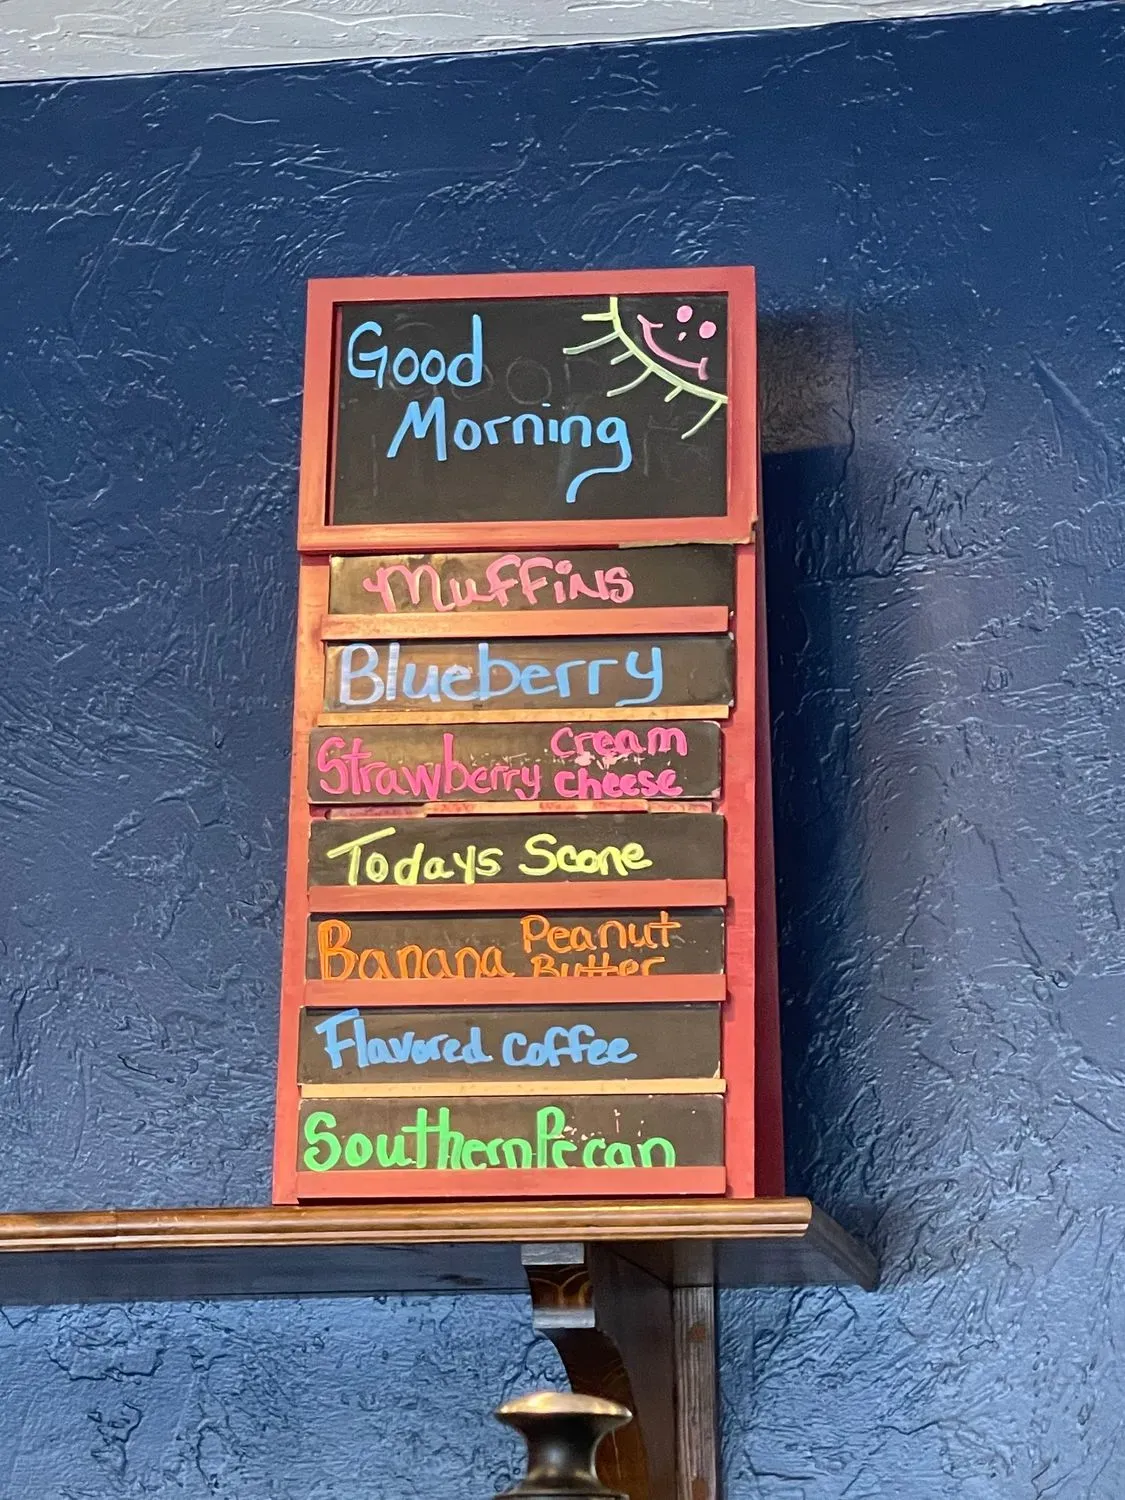 Good
Morning
Muffins
Blueberry
Strawberry cream cheese
Todays Scone
Banana Peanut Butter
Flavored coffee
Southern Pecan